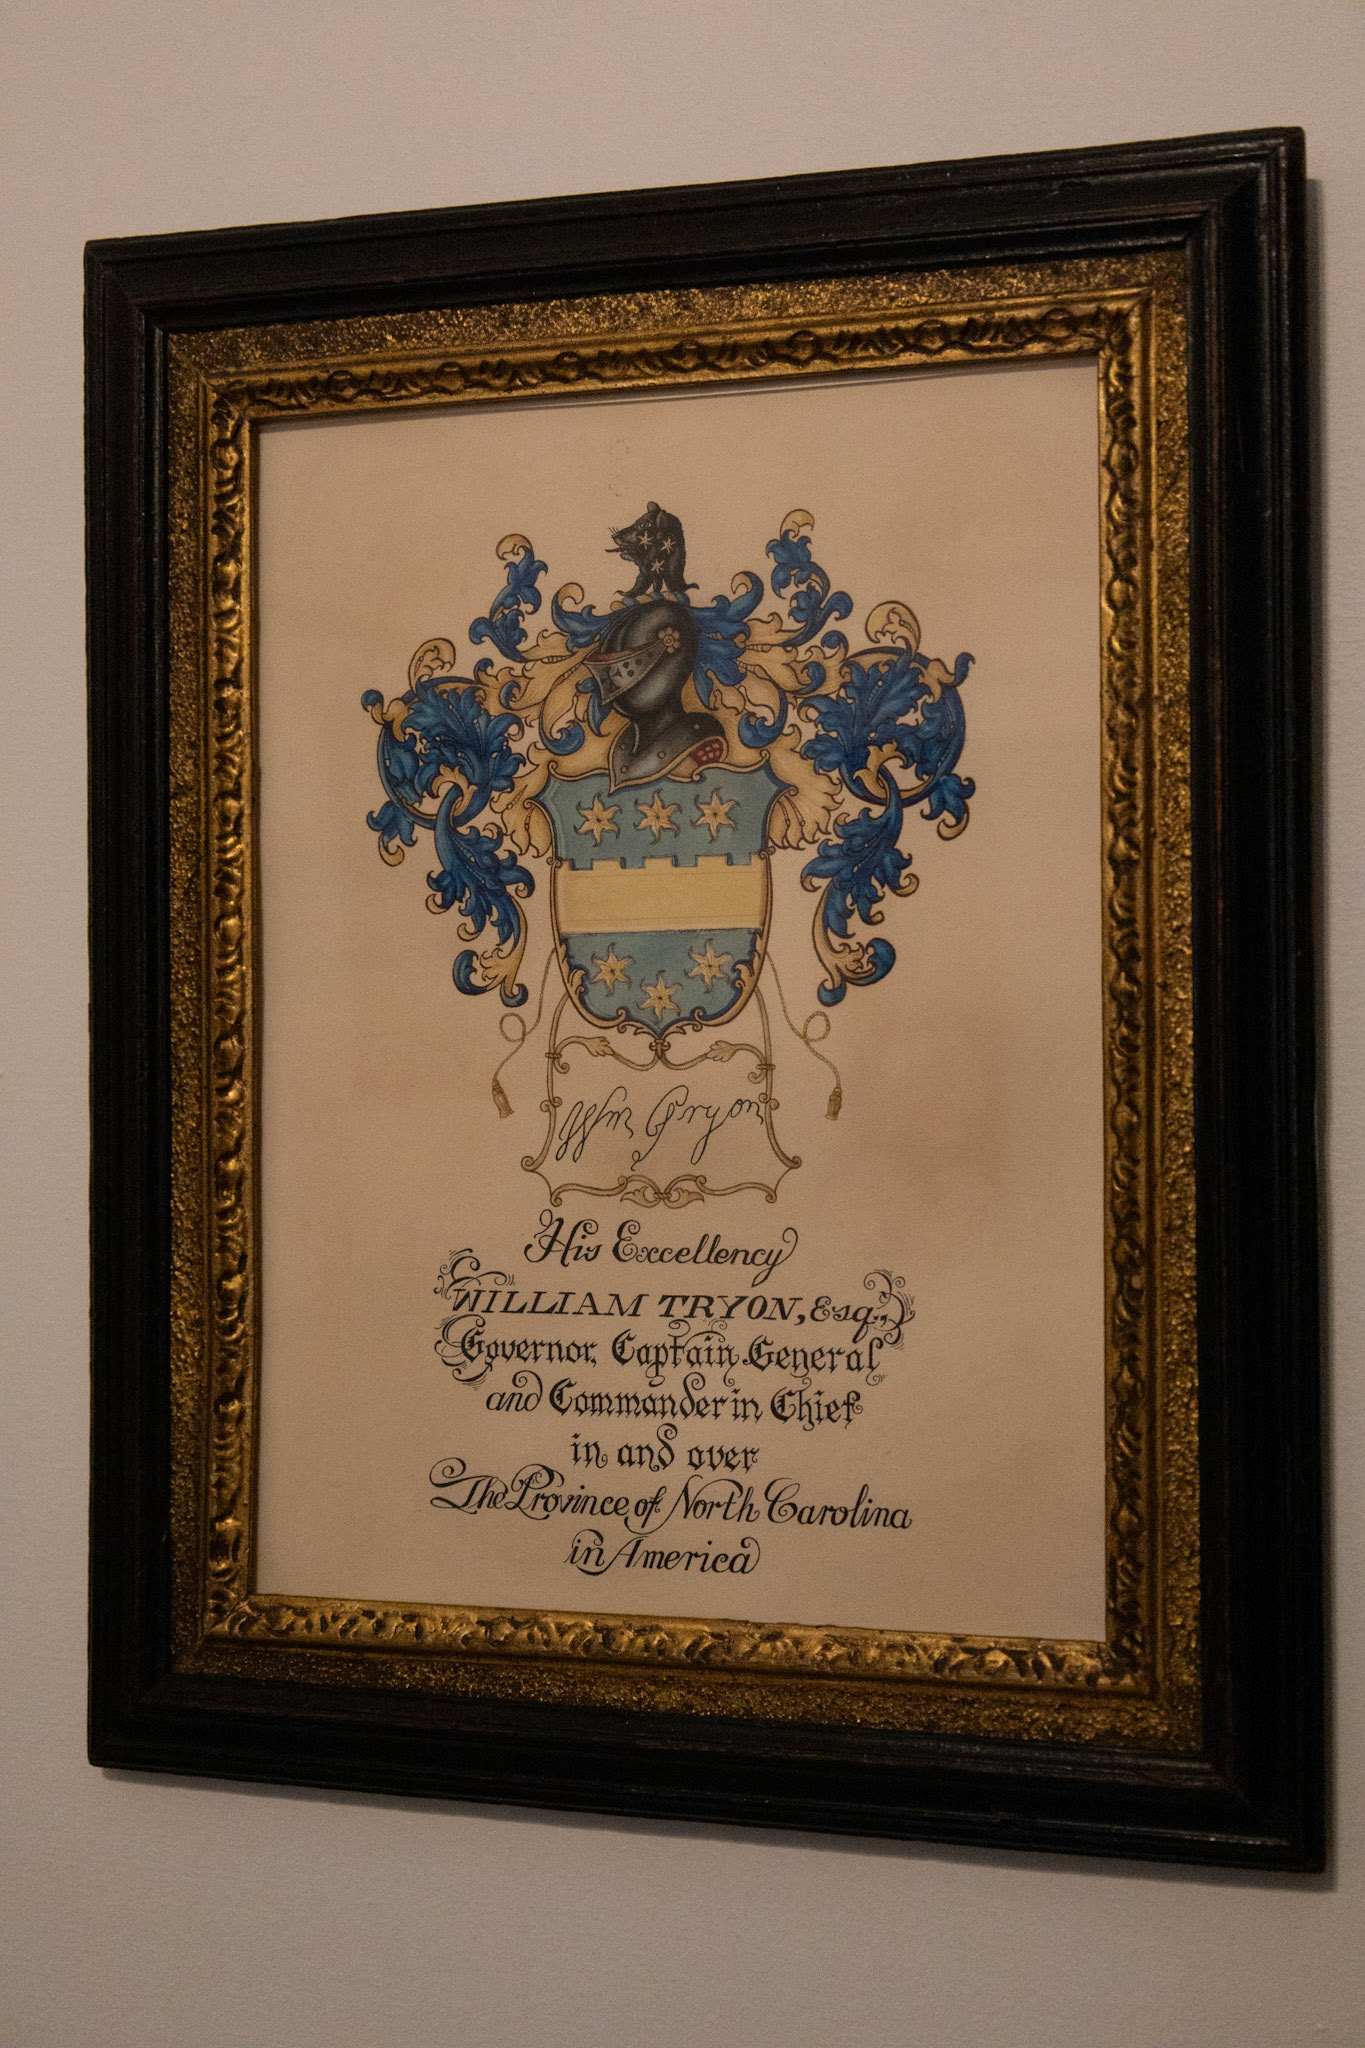 Wm Tryon
His Excellency
WILLIAM TRYON, Esq.,
Governor, Captain General
and Commander in Chief
in and over
The Province of North Carolina
in America